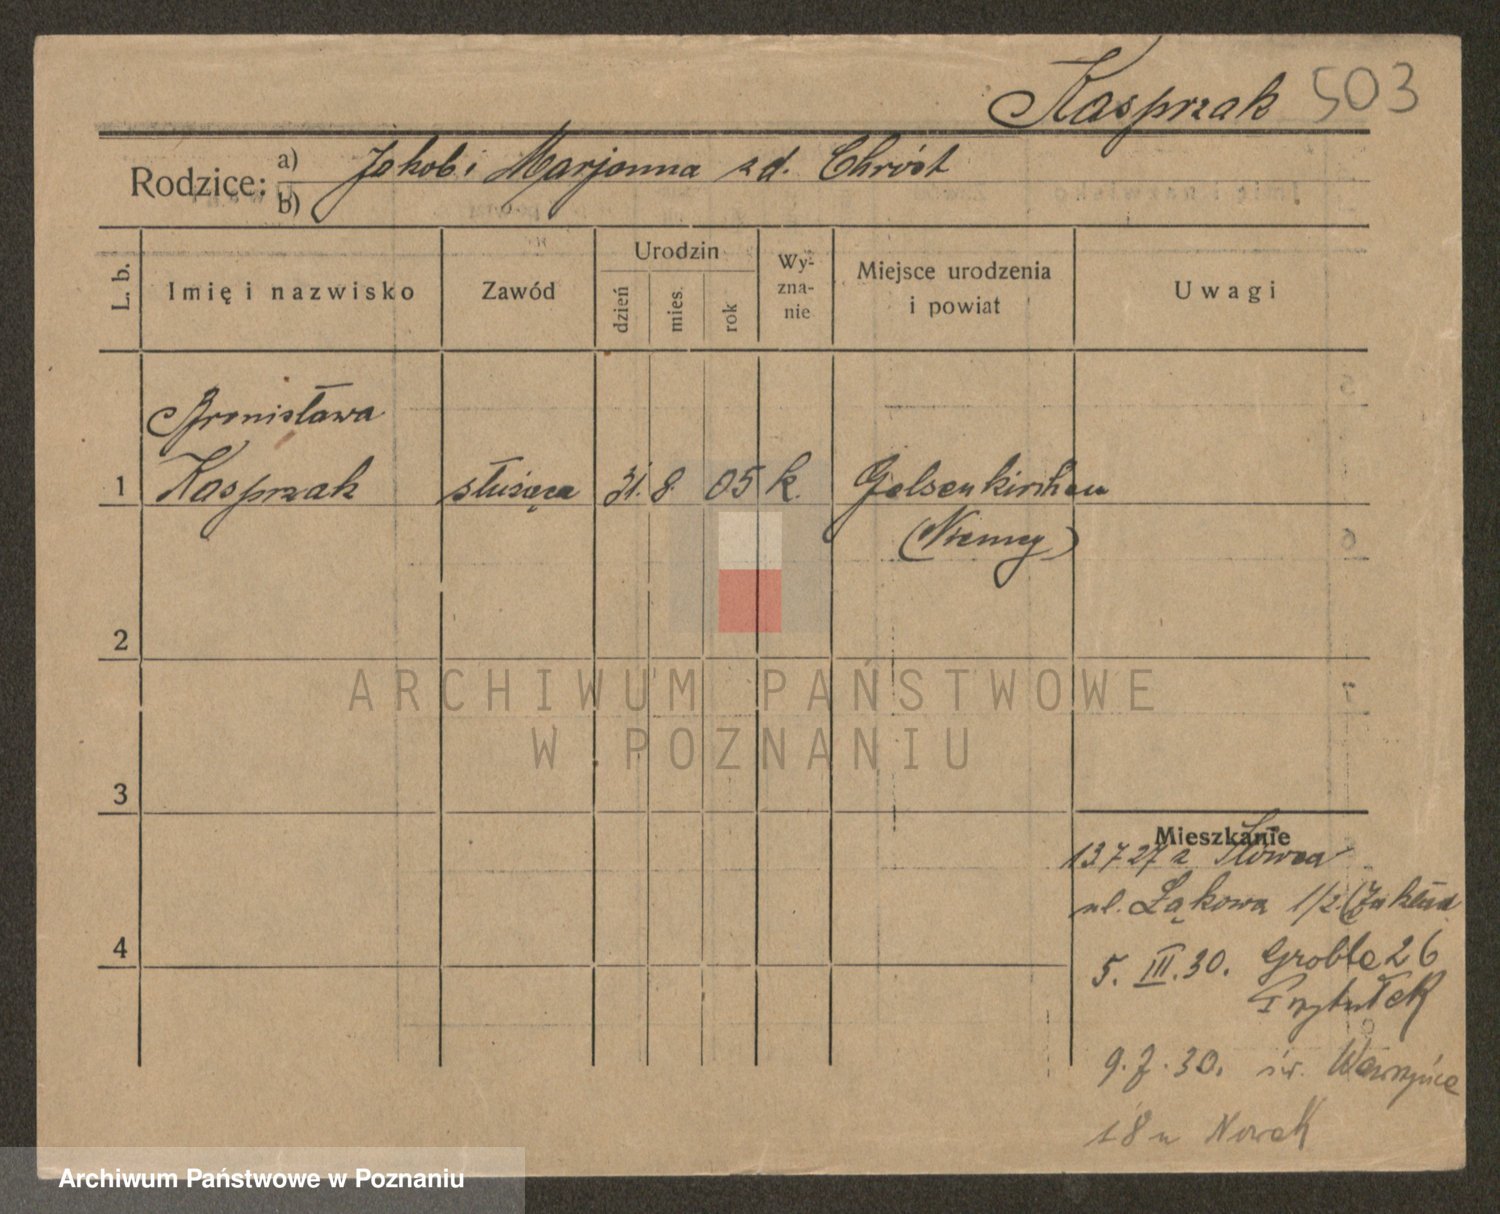 Kasprzak 503
Rodzice: a) Jakob i Marjanna z d. Chróst
b)
L. b. Imię i nazwisko Zawód Urodzin dzień mies. rok Wy-zna-nie Miejsce urodzenia i powiat Uwagi
Bronisława
1 Kasprzak służąca 31. 8. 05 k. Gelsenkirchen
(Niemcy)
2
ARCHIWUM PAŃSTWOWE
W POZNANIU
3
Mieszkanie
13 7 27 z
ul. Łąkowa 1/2 (Zakład
4
5. III. 30. Grobla 26
Przytułek
9. 7. 30. św. Wawrzyńca
18 u Nowak
Archiwum Państwowe w Poznaniu